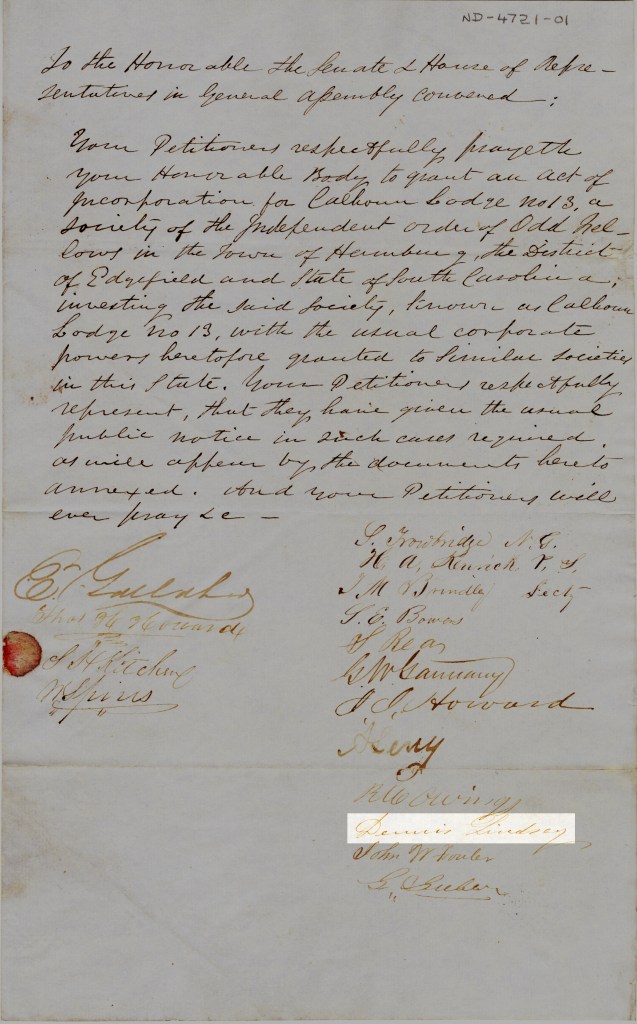 ND-4721-01
To the Honorable the Senate & House of Repre-
sentatives in General assembly convened:
Your Petitioners respectfully prayeth
your Honorable Body to grant an act of
Incorporation for Calhoun Lodge no 13, a
society of the Independent order of Odd Fel-
lows in the Town of Hamburg, the District
of Edgefield and State of South Carolina,
investing the said Society, known as Calhoun
Lodge No 13, with the usual corporate
powers heretofore granted to Similar societies
in this State. Your Petitioners respectfully
represent, that they have given the usual
public notice in such cases required,
as will appear by the documents hereto
annexed. And your Petitioners will
ever pray &c —
S. Trowbridge N. G.
H. A. Kenrick V. G.
J M Brindley Secty
S. E. Bowers
G W Garmany
J. J. Howard
Dennis Lindsey
John W
Thos H Howard
J. H. Kitchen